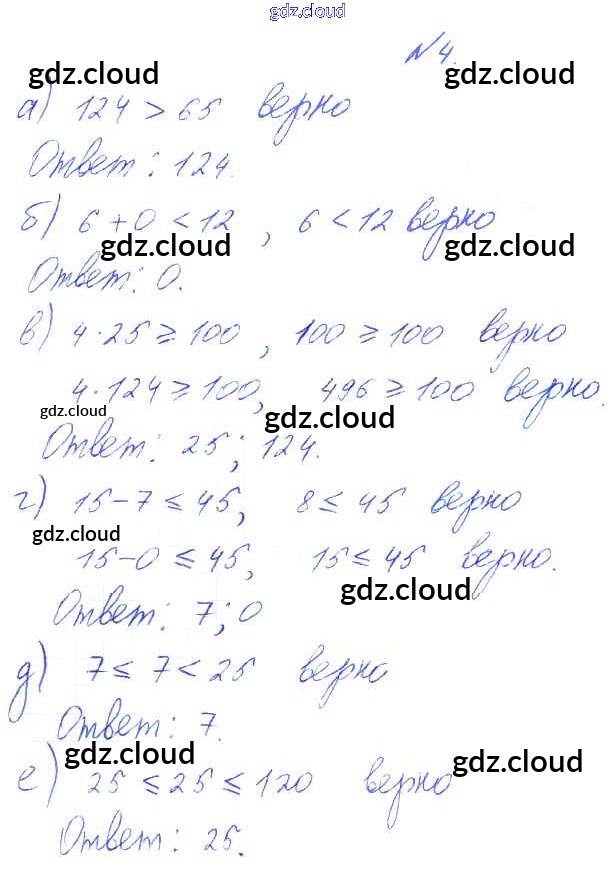 gdz.cloud
N 4.
gdz.cloud gdz.cloud
а) 124 > 65 верно
Ответ: 124.
б) 6 + 0 < 12 , 6 < 12 верно
gdz.cloud gdz.cloud
Ответ: 0.
в) 4 · 25 ⩾ 100 , 100 ⩾ 100 верно
4 · 124 ⩾ 100, 496 ⩾ 100 верно.
gdz.cloud gdz.cloud
Ответ: 25; 124.
г) 15 - 7 ⩽ 45, 8 ⩽ 45 верно
gdz.cloud
15 - 0 ⩽ 45, 15 ⩽ 45 верно.
gdz.cloud
Ответ: 7; 0
д) 7 ⩽ 7 < 25 верно
Ответ: 7.
gdz.cloud gdz.cloud
е) 25 ⩽ 25 ⩽ 120 верно
Ответ: 25.